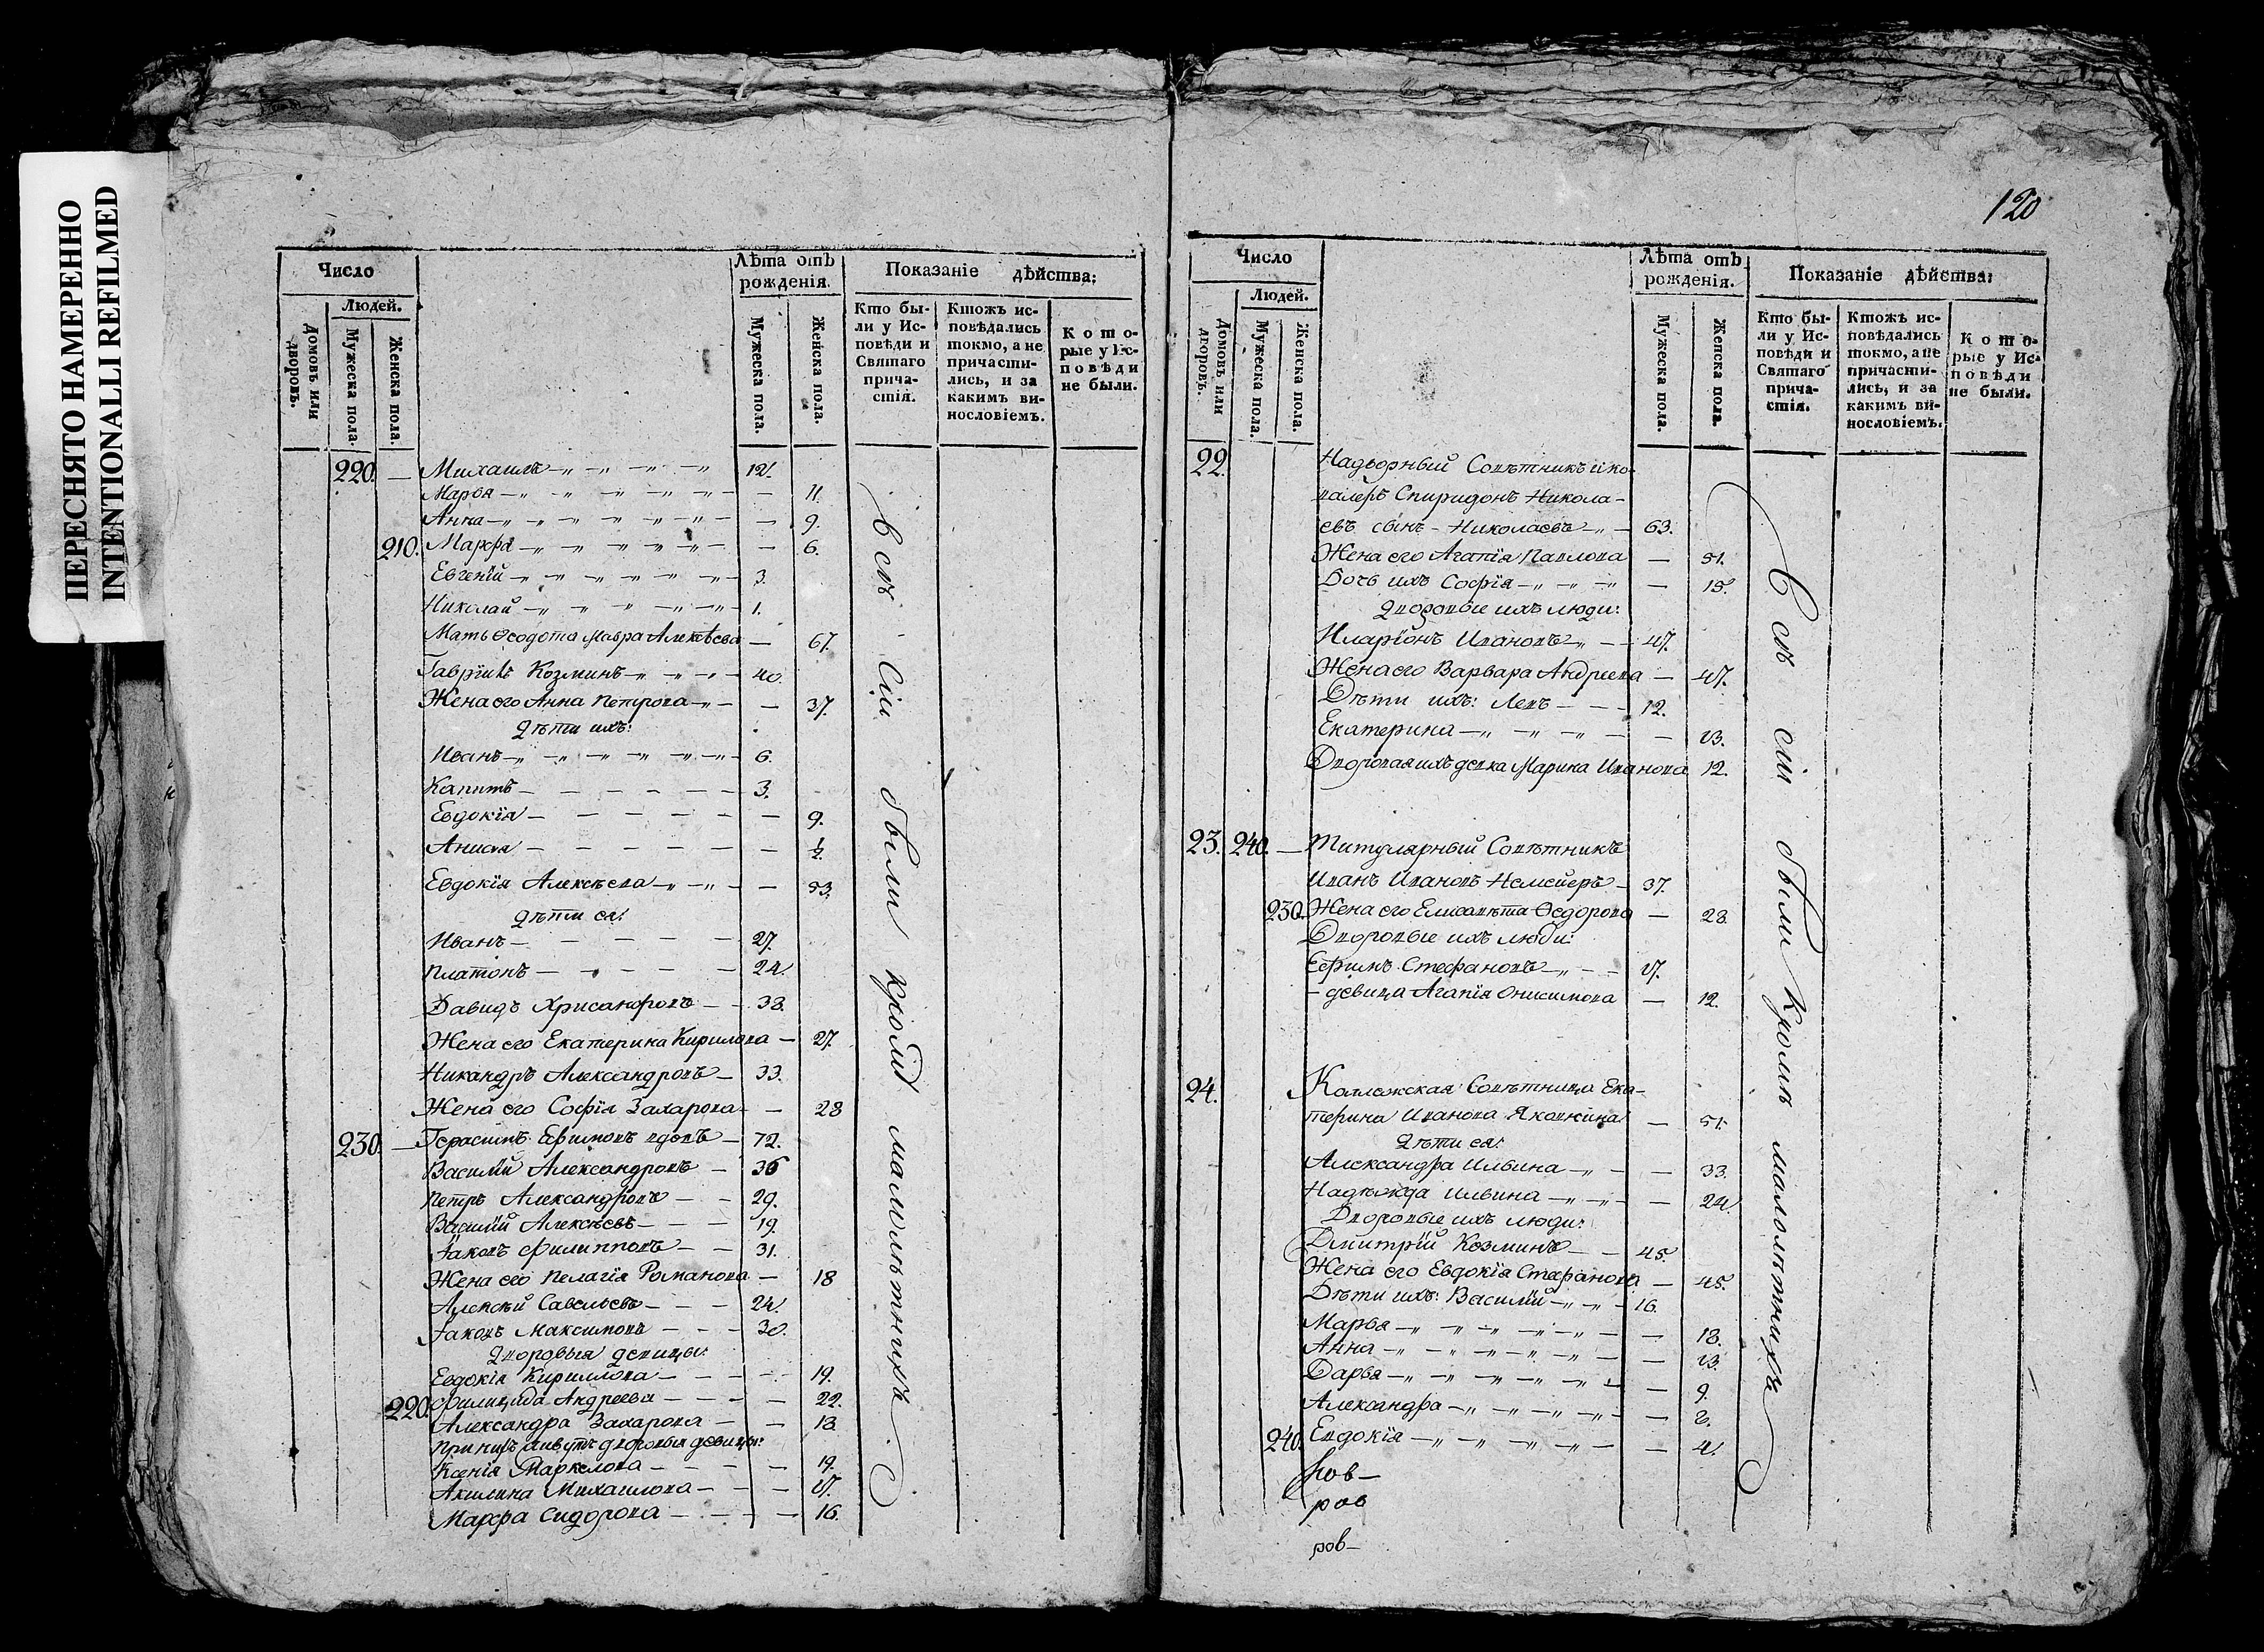 ПЕРЕСНЯТО НАМЕРЕННО
INTENTIONALLI REFILMED
Число
Людей.
Домовъ или дворовъ.
Мужеска пола.
Женска пола.
Лѣта отъ рожденія.
Мужеска пола.
Женска пола.
Показаніе дѣйства:
Кто бы-
ли у Ис-
повѣди и
Святаго
прича-
стія.
Ктожъ ис-
повѣдались
токмо, а не
причасти-
лись, и за
какимъ ви-
нословіемъ.
Кото-
рые у Ис-
повѣди
не были.
220. — Михаилъ 12.
Марья — 11.
Анна — 9.
210. Марфа — 6.
Евгеній 3.
Николай 1.
Мать Ѳеодота Мавра Алексѣева — 67.
Гавріилъ Козминъ 40.
Жена его Анна Петрова — 37.
Дѣти ихъ:
Иванъ 6.
Капитъ 3.
Евдокія — 9.
Анисья — ½.
Евдокія Алексѣева — 53.
дѣти ея:
Иванъ — 27.
Платонъ — 24.
Давидъ Хрисанфовъ — 38.
Жена его Екатерина Кирилова — 27.
Никандръ Александровъ — 33.
Жена его Софія Захарова — 28
230. — Герасимъ Ефимовъ вдовъ — 72.
Василій Александровъ — 36
Петръ Александровъ — 29.
Василій Алексѣевъ — 19.
Іаковъ Филипповъ — 31.
Жена его Пелагія Романова — 18
Алексѣй Савельевъ — 24.
Іаковъ Максимовъ — 30.
Дворовыя девицы:
Евдокія Кирилова — 19.
220. Андреева — 22.
Александра Захарова — 18
При нихъ живутъ дворовыя девицы:
Ксенія Маркелова — 19.
Акилина Михаилова — 17.
Марфа Сидорова — 16.
Всѣ сіи были кромѣ малолѣтнихъ.
120
Число
Людей.
Домовъ или дворовъ.
Мужеска пола.
Женска пола.
Лѣта отъ рожденія.
Мужеска пола.
Женска пола.
Показаніе дѣйства:
Кто бы-
ли у Ис-
повѣди и
Святаго
прича-
стія.
Ктожъ ис-
повѣдались
токмо, а не
причасти-
лись, и за
какимъ ви-
нословіемъ.
Кото-
рые у Ис-
повѣди
не были.
22. Надворный Совѣтникъ и ка-
валеръ Спиридонъ Никола-
евъ сынъ — Николаевъ — 63.
Жена его Агапія Павлова — 51.
Дочь ихъ Софія — 15.
Дворовые ихъ люди:
Иларіонъ Ивановъ — 47.
Жена его Варвара Андреева — 47.
Дѣти ихъ: Левъ — 12.
Екатерина — 13.
Дворовая ихъ девка Марина Иванова 12.
23. 240. — Титулярный Совѣтникъ
Иванъ Ивановъ Немейеръ — 37.
230. Жена его Елисавета Ѳедорова — 28.
Дворовые ихъ люди:
Ефимъ Стефановъ — 17.
— девица Агапія Онисимова — 12.
24. Коллежская Совѣтница Ека-
терина Иванова — 51.
Дѣти ея:
Александра Ильина — 33.
Надежда Ильина — 24.
Дворовые ихъ люди:
Дмитрій Козминъ — 45.
Жена его Евдокія Стефанова — 45.
Дѣти ихъ: Василій — 16.
Марья — 18.
Анна — 13.
Дарья — 9.
Александра — 8.
240. Евдокія — 4.
ров—
ров—
Всѣ сіи были кромѣ малолѣтнихъ